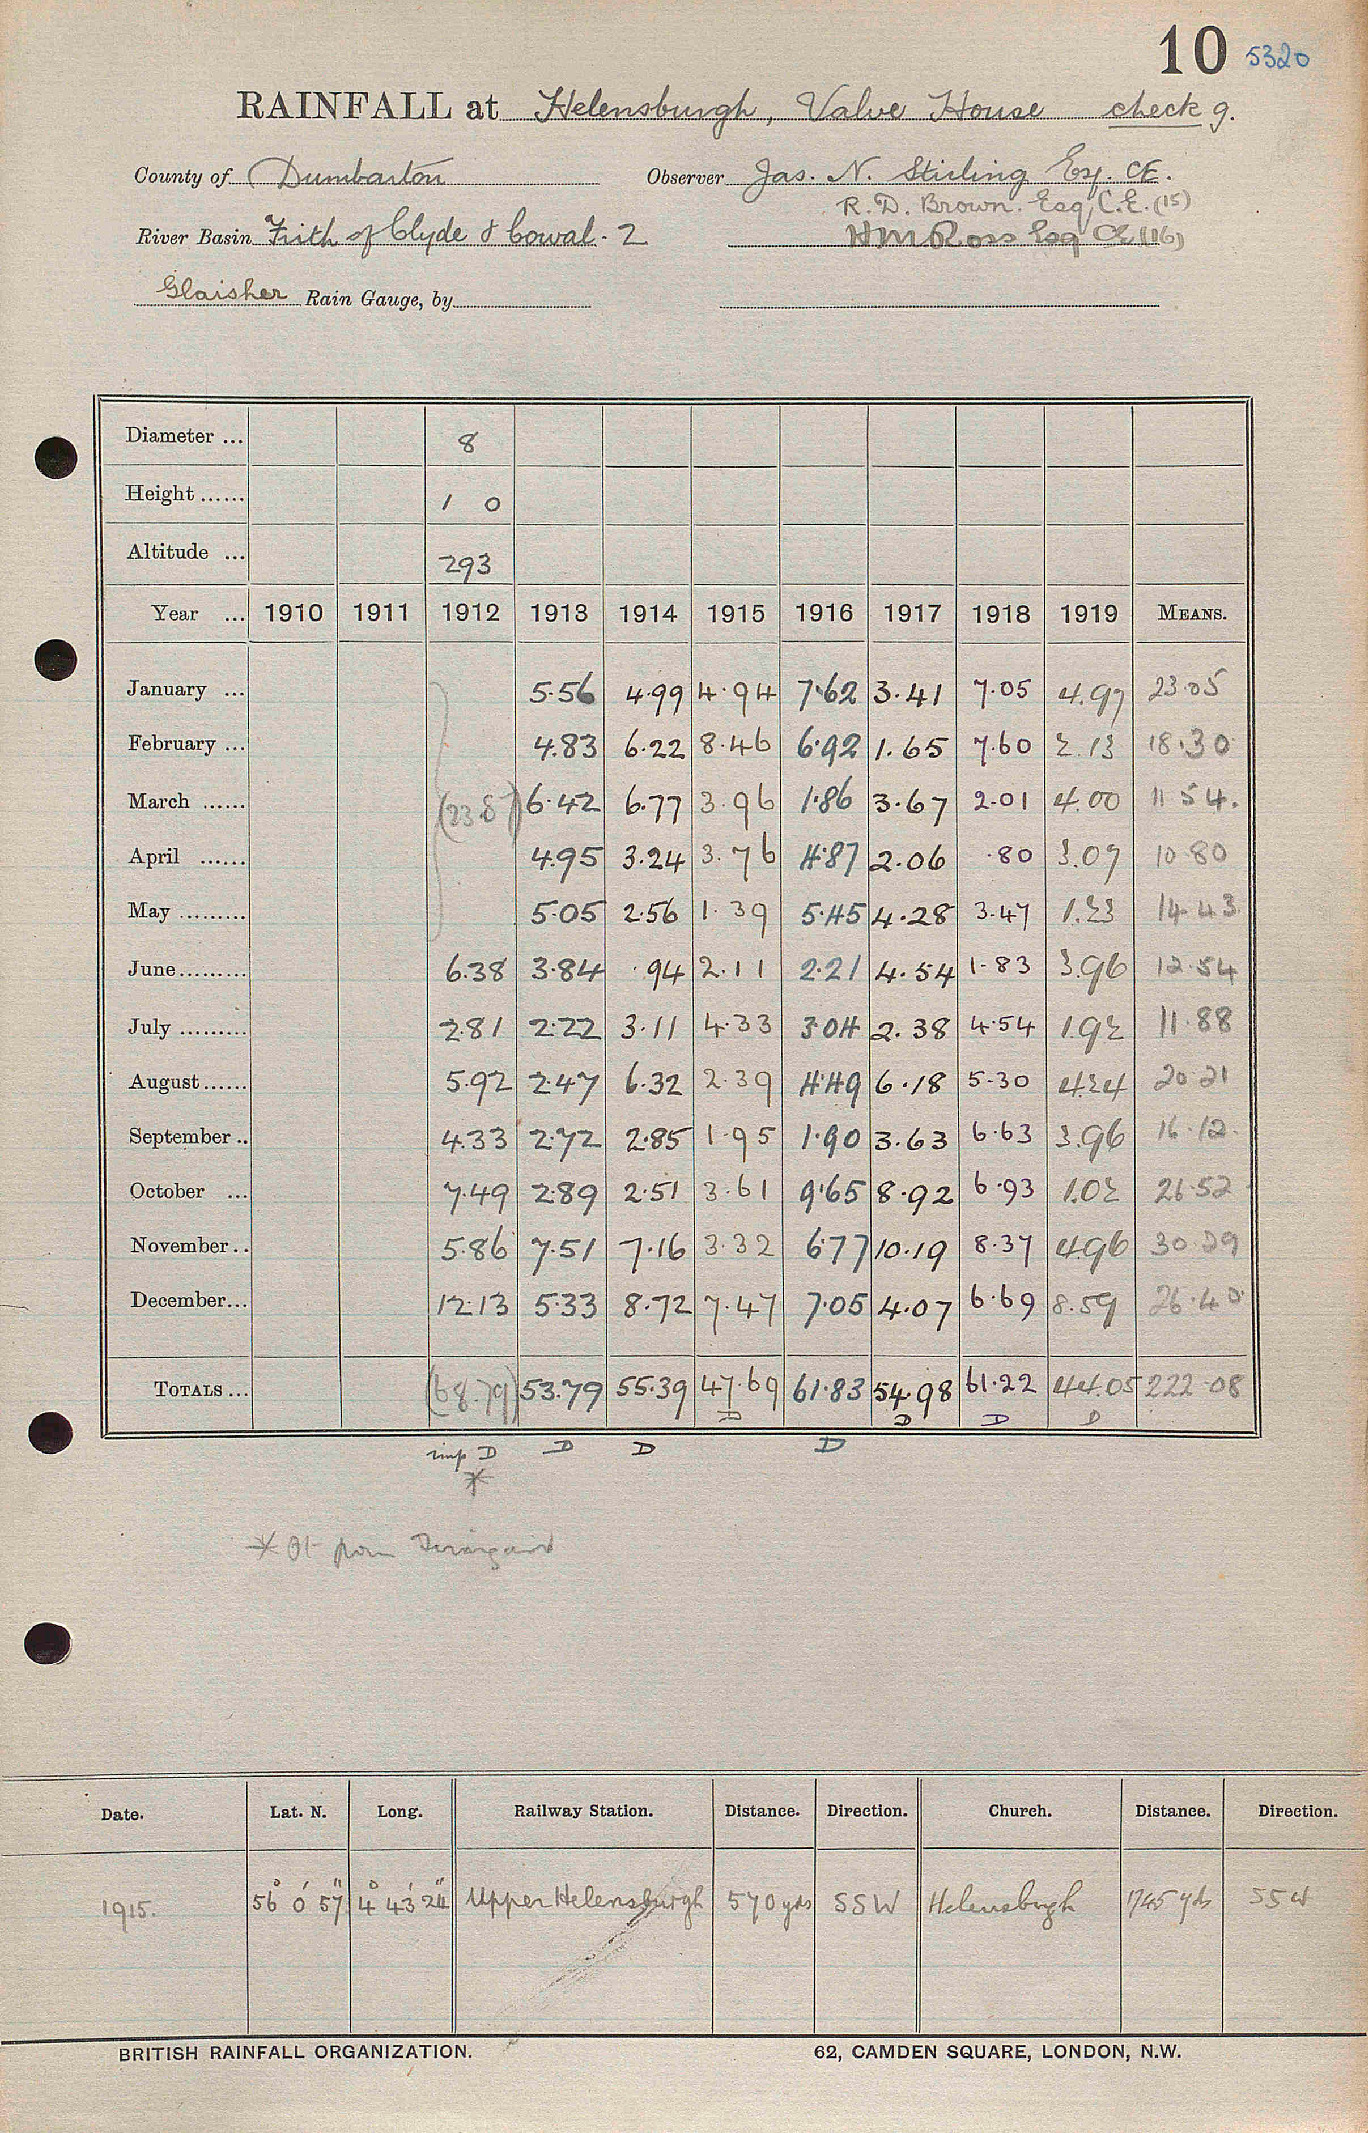 10 5320
RAINFALL at Helensburgh, Valve House check g.
County of Dumbarton Observer Jas. N. Stirling Esq. CE.
R. D. Brown. Esq, C.E. (15)
River Basin Frith of Clyde & Cowal. 2 HM Ross Esq CE (16)
Glaisher Rain Gauge, by
Diameter ... 8
Height ...... 1 0
Altitude ... 293
Year ... 1910 1911 1912 1913 1914 1915 1916 1917 1918 1919 MEANS.
January ... 5.56 4.99 4.94 7.62 3.41 7.05 4.97 23.05
February ... 4.83 6.22 8.46 6.92 1.65 7.60 2.13 18.30
March ...... (23.87) 6.42 6.77 3.96 1.86 3.67 2.01 4.00 11 54.
April ...... 4.95 3.24 3.76 4.87 2.06 .80 3.07 10.80
May ......... 5.05 2.56 1.39 5.45 4.28 3.47 1.23 14.43
June......... 6.38 3.84 .94 2.11 2.21 4.54 1.83 3.96 12.54
July ......... 2.81 2.22 3.11 4.33 3.04 2.38 4.54 1.92 11.88
August...... 5.92 2.47 6.32 2.39 4.49 6.18 5.30 4.24 20.21
September .. 4.33 2.72 2.85 1.95 1.90 3.63 6.63 3.96 16.12
October ... 7.49 2.89 2.51 3.61 9.65 8.92 6.93 1.02 26.52
November .. 5.86 7.51 7.16 3.32 6.77 10.19 8.37 4.96 30.29
December... 12.13 5.33 8.72 7.47 7.05 4.07 6.69 8.59 26.40
TOTALS ... (68.79) 53.79 55.39 47.69 61.83 54.98 61.22 44.05 222.08
D D D D
imp D D D D
*
* from
Date. Lat. N. Long. Railway Station. Distance. Direction. Church. Distance. Direction.
1915. 56° 0' 57" 4° 43' 24" Upper Helensburgh 570 yds SSW Helensburgh 1745 yds SSW
BRITISH RAINFALL ORGANIZATION. 62, CAMDEN SQUARE, LONDON, N.W.